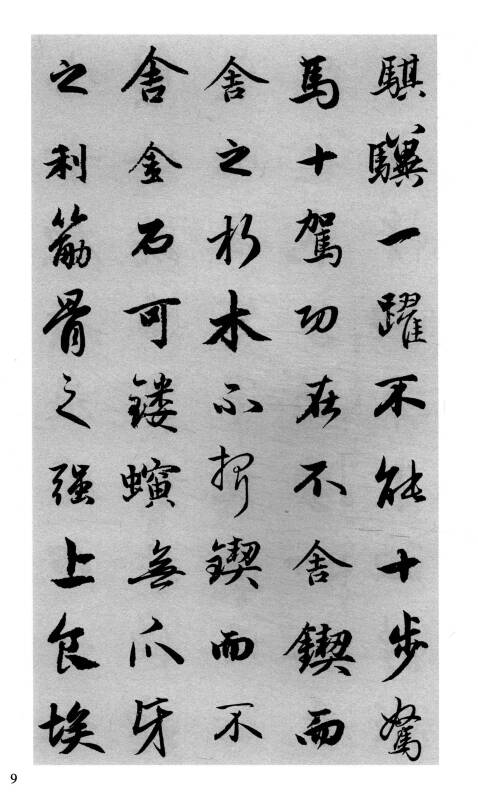 騏驥一躍不能十步駑
馬十駕功在不舍鍥而
舍之朽木不折鍥而不
舍金石可鏤螾無爪牙
之利筋骨之强上食埃
9